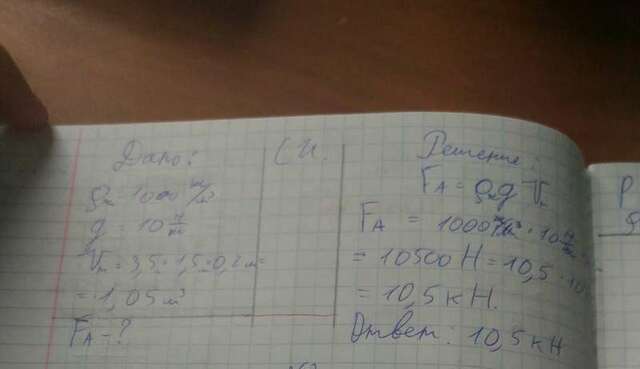 Дано:
ρж = 1000 кг/м³
g = 10 Н/кг
Vт = 3,5м·1,5м·0,2м=
= 1,05 м³
FA - ?
СИ.
Решение:
FA = ρж g Vт
FA = 1000 кг/м³ · 10
= 10500 Н = 10,5 · 10
= 10,5 кН.
Ответ: 10,5 кН
Р